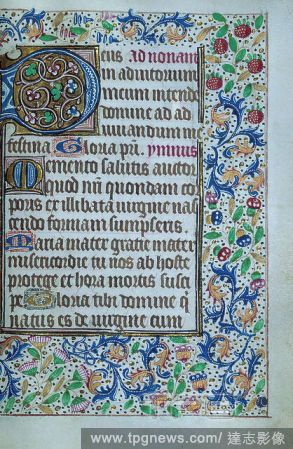 Deus Ad nonam
in adiutorium
meum intend
domine ad ad
iuuandum me
festina Gloria pri. ymnus
Memento salutis auctor
quod nri quondam cor
poris ex illibata uirgine nas
cendo formam sumpseris
Maria mater gratie mater
misericordie tu nos ab hoste
protege et hora mortis susci
pe Gloria tibi domine q
natus es de uirgine cum
www.tpgnews.com/ 達志影像